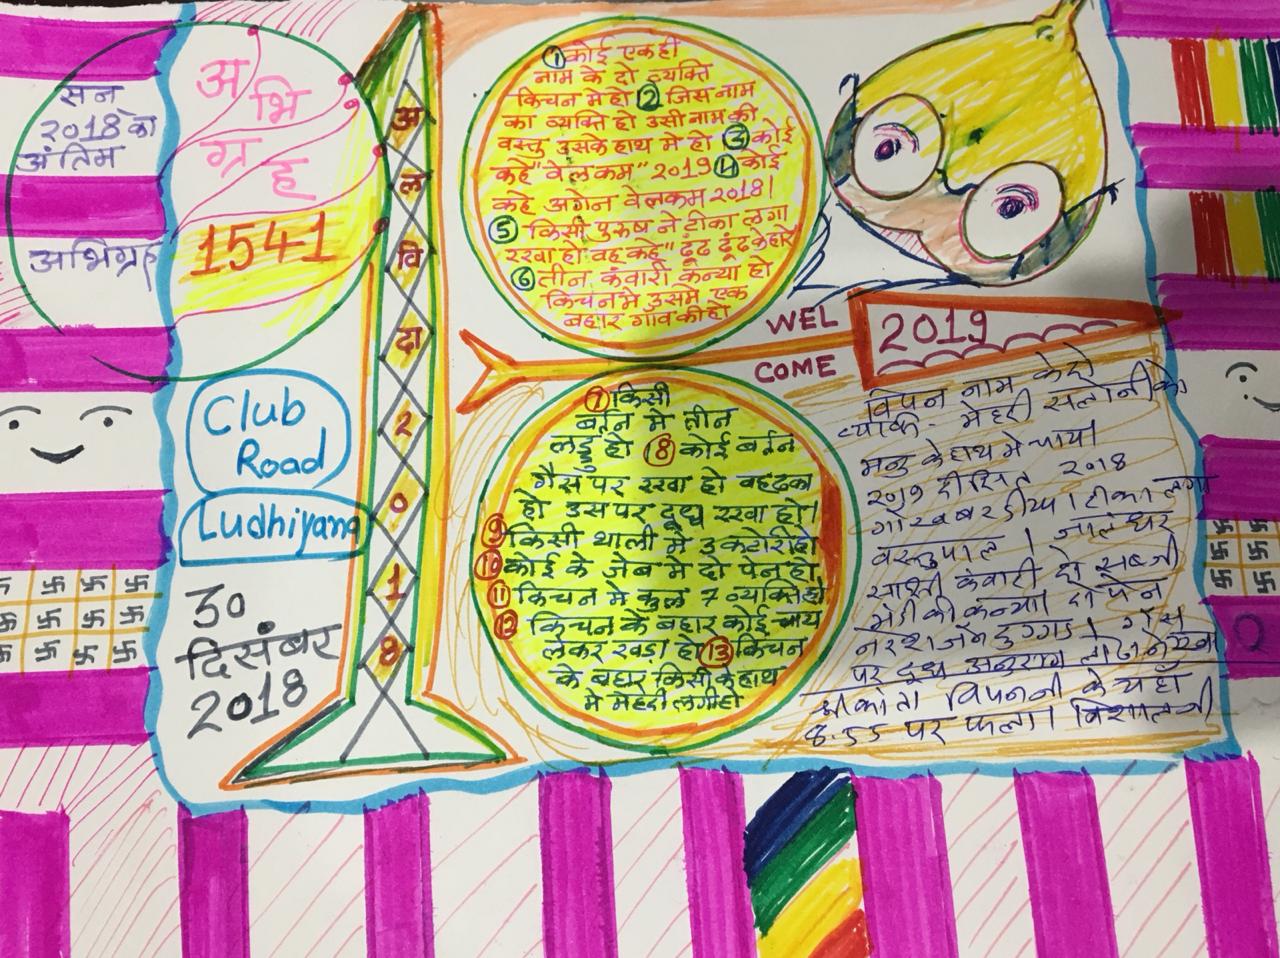 सन
2018 का
अंतिम
अभिग्रह
अ
भि
ग्र
ह
1541
Club
Road
Ludhiyana
30
दिसंबर
2018
अ
ल
वि
दा
2
0
1
8
① कोई एक ही
नाम के दो व्यक्ति
किचन मे हो ② जिस नाम
का व्यक्ति हो उसी नाम की
वस्तु उसके हाथ मे हो ③ कोई
कहे "वेलकम" 2019 ④ कोई
कहे अगेन वेलकम 2018।
⑤ किसी पुरुष ने टीका लगा
रखा हो वह कहे" ढूंढ ढूंढ के हारे
⑥ तीन कंवारी कन्या हो
किचन मे उसमे एक
बहार गाँव की हो
WEL
COME
2019
⑦ किसी
बर्तन मे तीन
लड्डु हो ⑧ कोई बर्तन
गैस पर रखा हो वह ढका
हो उस पर दूध रखा हो।
⑨ किसी थाली मे 3 कटोरी हो
⑩ कोई के जेब मे दो पेन हो
⑪ किचन मे कुल 7 व्यक्ति हो
⑫ किचन के बहार कोई चाय
लेकर खड़ा हो ⑬ किचन
के बहार किसी के हाथ
मे मेहेदी लगी हो
विपन नाम के दो
मेहदी सलोनी के
के हाथ मे चाय।
2019 2018
टीका लगा
वस्तुपाल। जालंधर
कंवारी दो सब्जी
मंडी की कन्या। दो पेन
नरेश जैन दुग्गड। गैस
पर दूध अनुराग
विपनजी के यहाँ
8.55 पर फला।